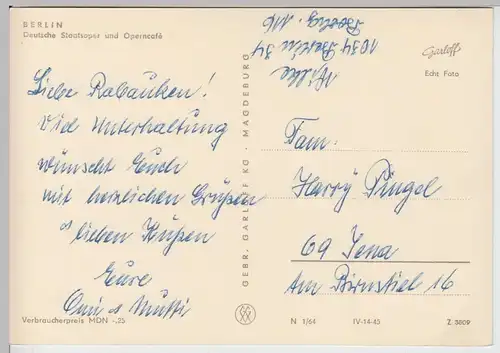 BERLIN
Deutsche Staatsoper und Operncafé
Liebe Rabauken!
Viel Unterhaltung
wünscht Euch
mit herzlichen Grüßen
lieben Küssen
Eure
Omi & Mutti
Verbraucherpreis MDN -.25
GEBR. GARLOFF KG. MAGDEBURG
1034 Berlin 34
116
Garloff
Echt Foto
Fam.
Harry Pingel
69 Jena
Am Birnstiel 16
N 1/64 IV-14-45 Z 3809